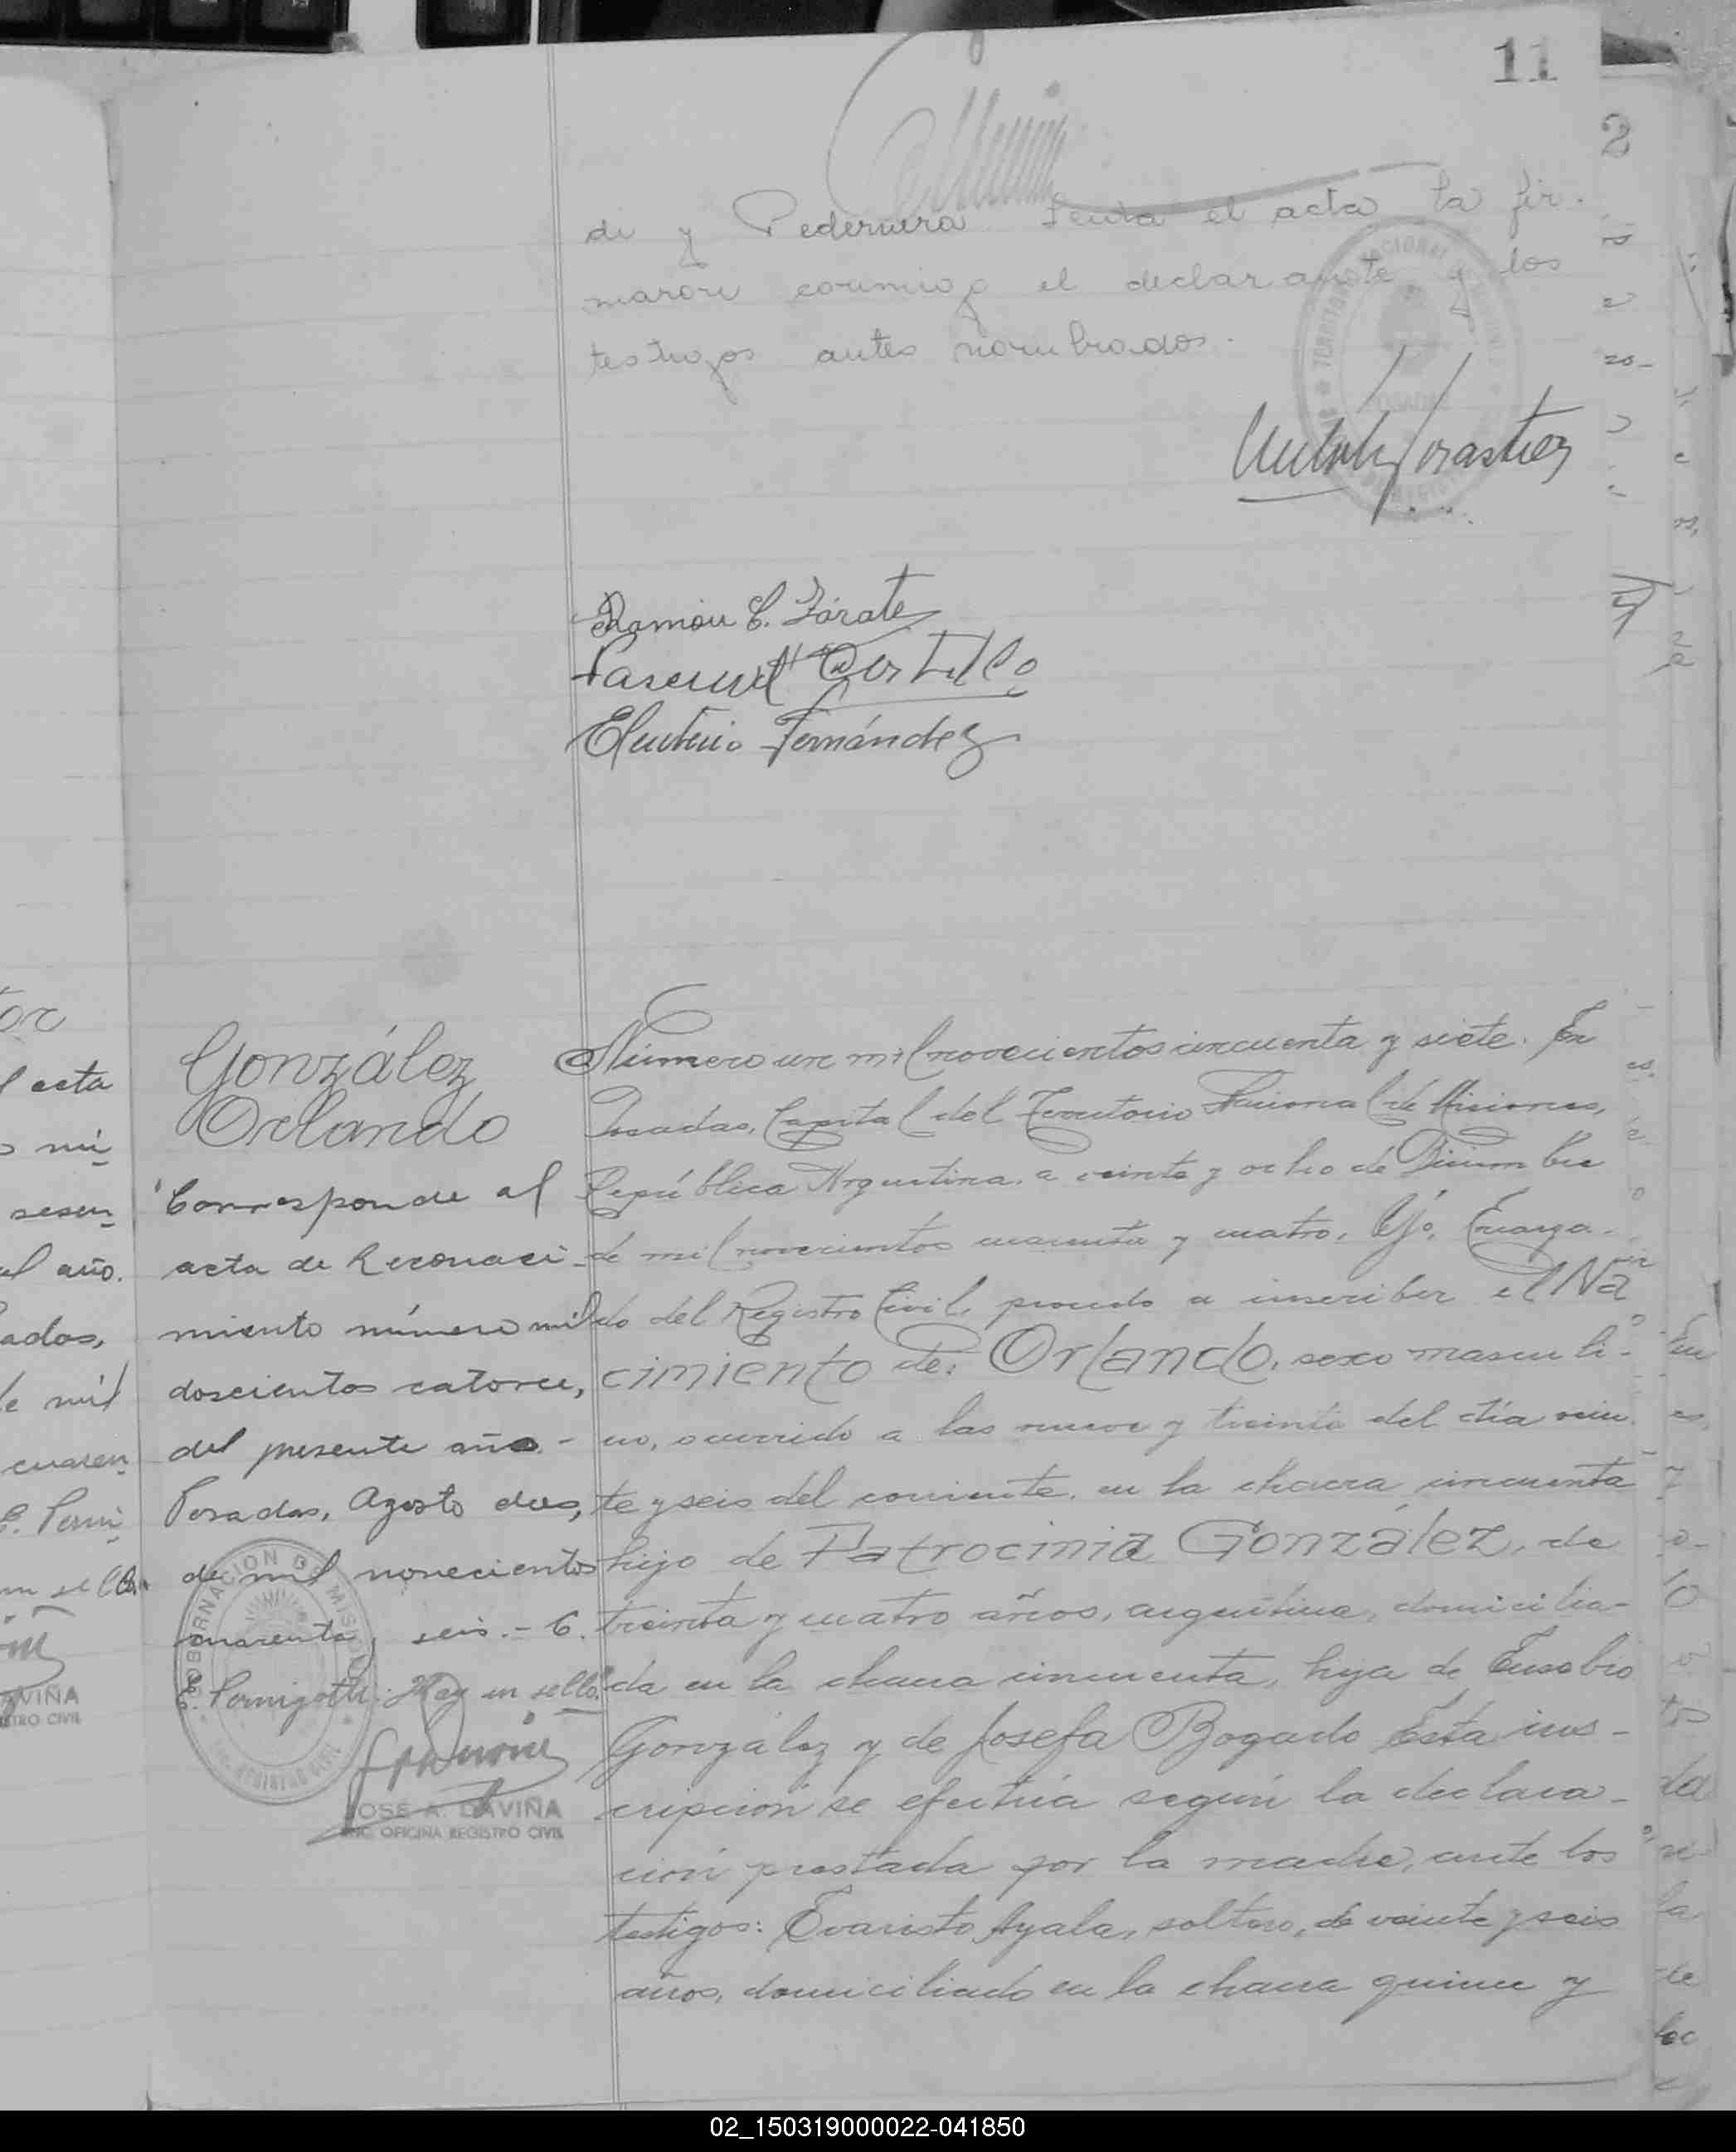 11
2
de y Pedernera. Leida el acta la fir-
maron conmigo el declarante y los
testigos antes nombrados.
Ramón C. Zárate
Pascual Portillo
Eleuterio Fernández
González
Orlando
Corresponde al
acta de Reconoci-
miento número mil
doscientos catorce,
del presente año.-
Posadas, Agosto dos,
de mil novecientos
cuarenta y seis.- C.
E. Pernigotti: Hay un sello.
JOSE A. DAVIÑA
ENC. OFICINA REGISTRO CIVIL
Número un mil novecientos cincuenta y siete. En
Posadas, Capital del Territorio Nacional de Misiones,
República Argentina, a veinte y ocho de Diciembre
de mil novecientos cuarenta y cuatro, Yo, Encarga-
do del Registro Civil, procedo a inscribir el Na
cimiento de: Orlando, sexo masculi-
no, ocurrido a las nueve y treinta del día vein
te y seis del corriente, en la chacra cincuenta
hijo de Patrocinia González, de
treinta y cuatro años, argentina, domicilia-
da en la chacra cincuenta, hija de Eusebio
González y de Josefa Bogado Esta ins-
cripción se efectúa según la declara-
ción prestada por la madre, ante los
testigos: Evaristo Ayala, soltero, de veinte y seis
años, domiciliado en la chacra quince y
02_150319000022-041850